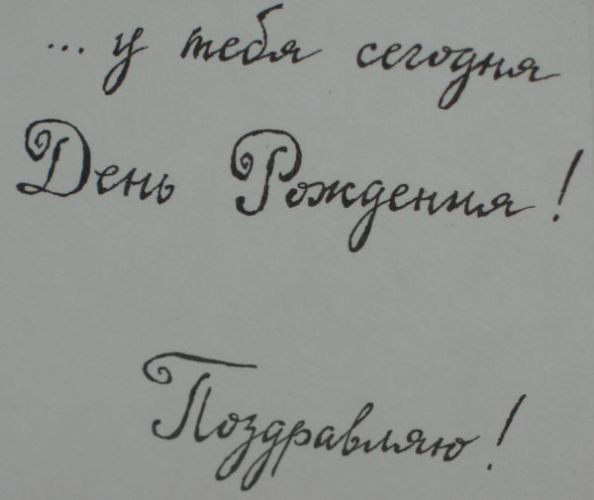 ... у тебя сегодня
День Рождения!
Поздравляю!